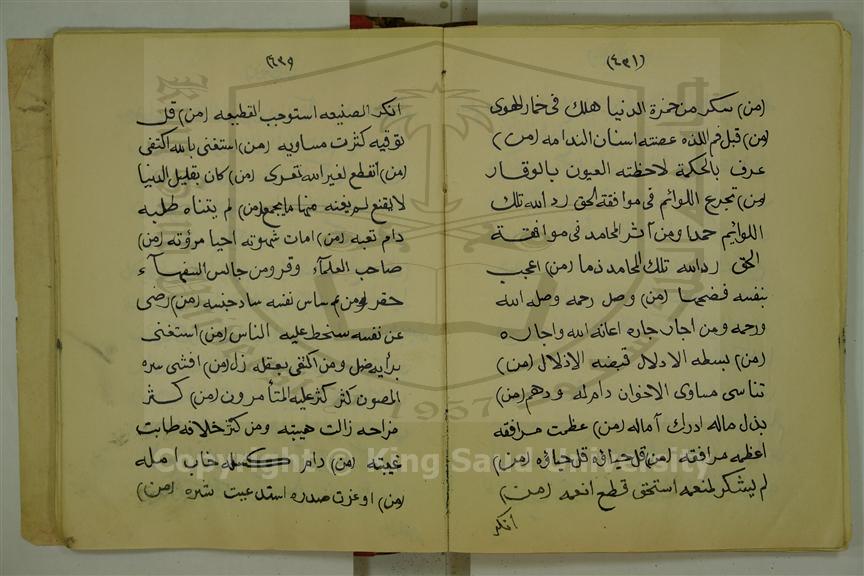 (٤٣١)
(من) سكر من خمرة الدنيا هلك فى خمار الهوى
(من) قبل فم اللذه عضته اسنان الندامه (من)
عرف بالحكمة لاحظته العيون بالوقار
(من) تجرع اللوائم فى موافقة الحق رد الله تلك
اللوائيم حمدا ومن آثر المحامد فى موافقة
الحق رد الله تلك المحامد ذما (من) اعجب
بنفسه فضحها (من) وصل رحمه وصله الله
ورحمه ومن اجار جاره اعانه الله واجاره
(من) بسطه الادلال قبضه الاذلال (من)
تناسى مساوى الاخوان دام له ودهم (من)
بذل ماله ادرك آماله (من) عظمت مرافقه
اعظمه مرافقه (من) قل حياؤه قل حباؤه (من)
لم يشكر لمنعمه استحق قطع انعمه (من)
انكر
(٤٣٩
انكر الصنيعه استوجب القطيعه (من) قل
توقيه كثرت مساويه (من) استغنى بالله اكتفى
(من) انقطع لغير الله تعرى (من) كان بقليل الدنيا
لا يقنع لم يغنه منها ما يجمع (من) لم يتناه طلبه
دام تعبه (من) امات شهوته احيا مرؤته (من)
صاحب العلمآء وقر ومن جالس السفهآء
حقر (من) ساس نفسه ساد جنسه (من) رضى
عن نفسه سخط عليه الناس (من) استغنى
برأيه ضل ومن اكتفى بعقله زل (من) افشى سره
المصون كثر عليه المتأمرون (من) كثر
مزاحه زالت هيبته ومن كثر خلافه طابت
غيبته (من) دام كسله خاب امله
(من) اوغرت صدره استدعيت شره (من)
Copyright © King Saud University
1957